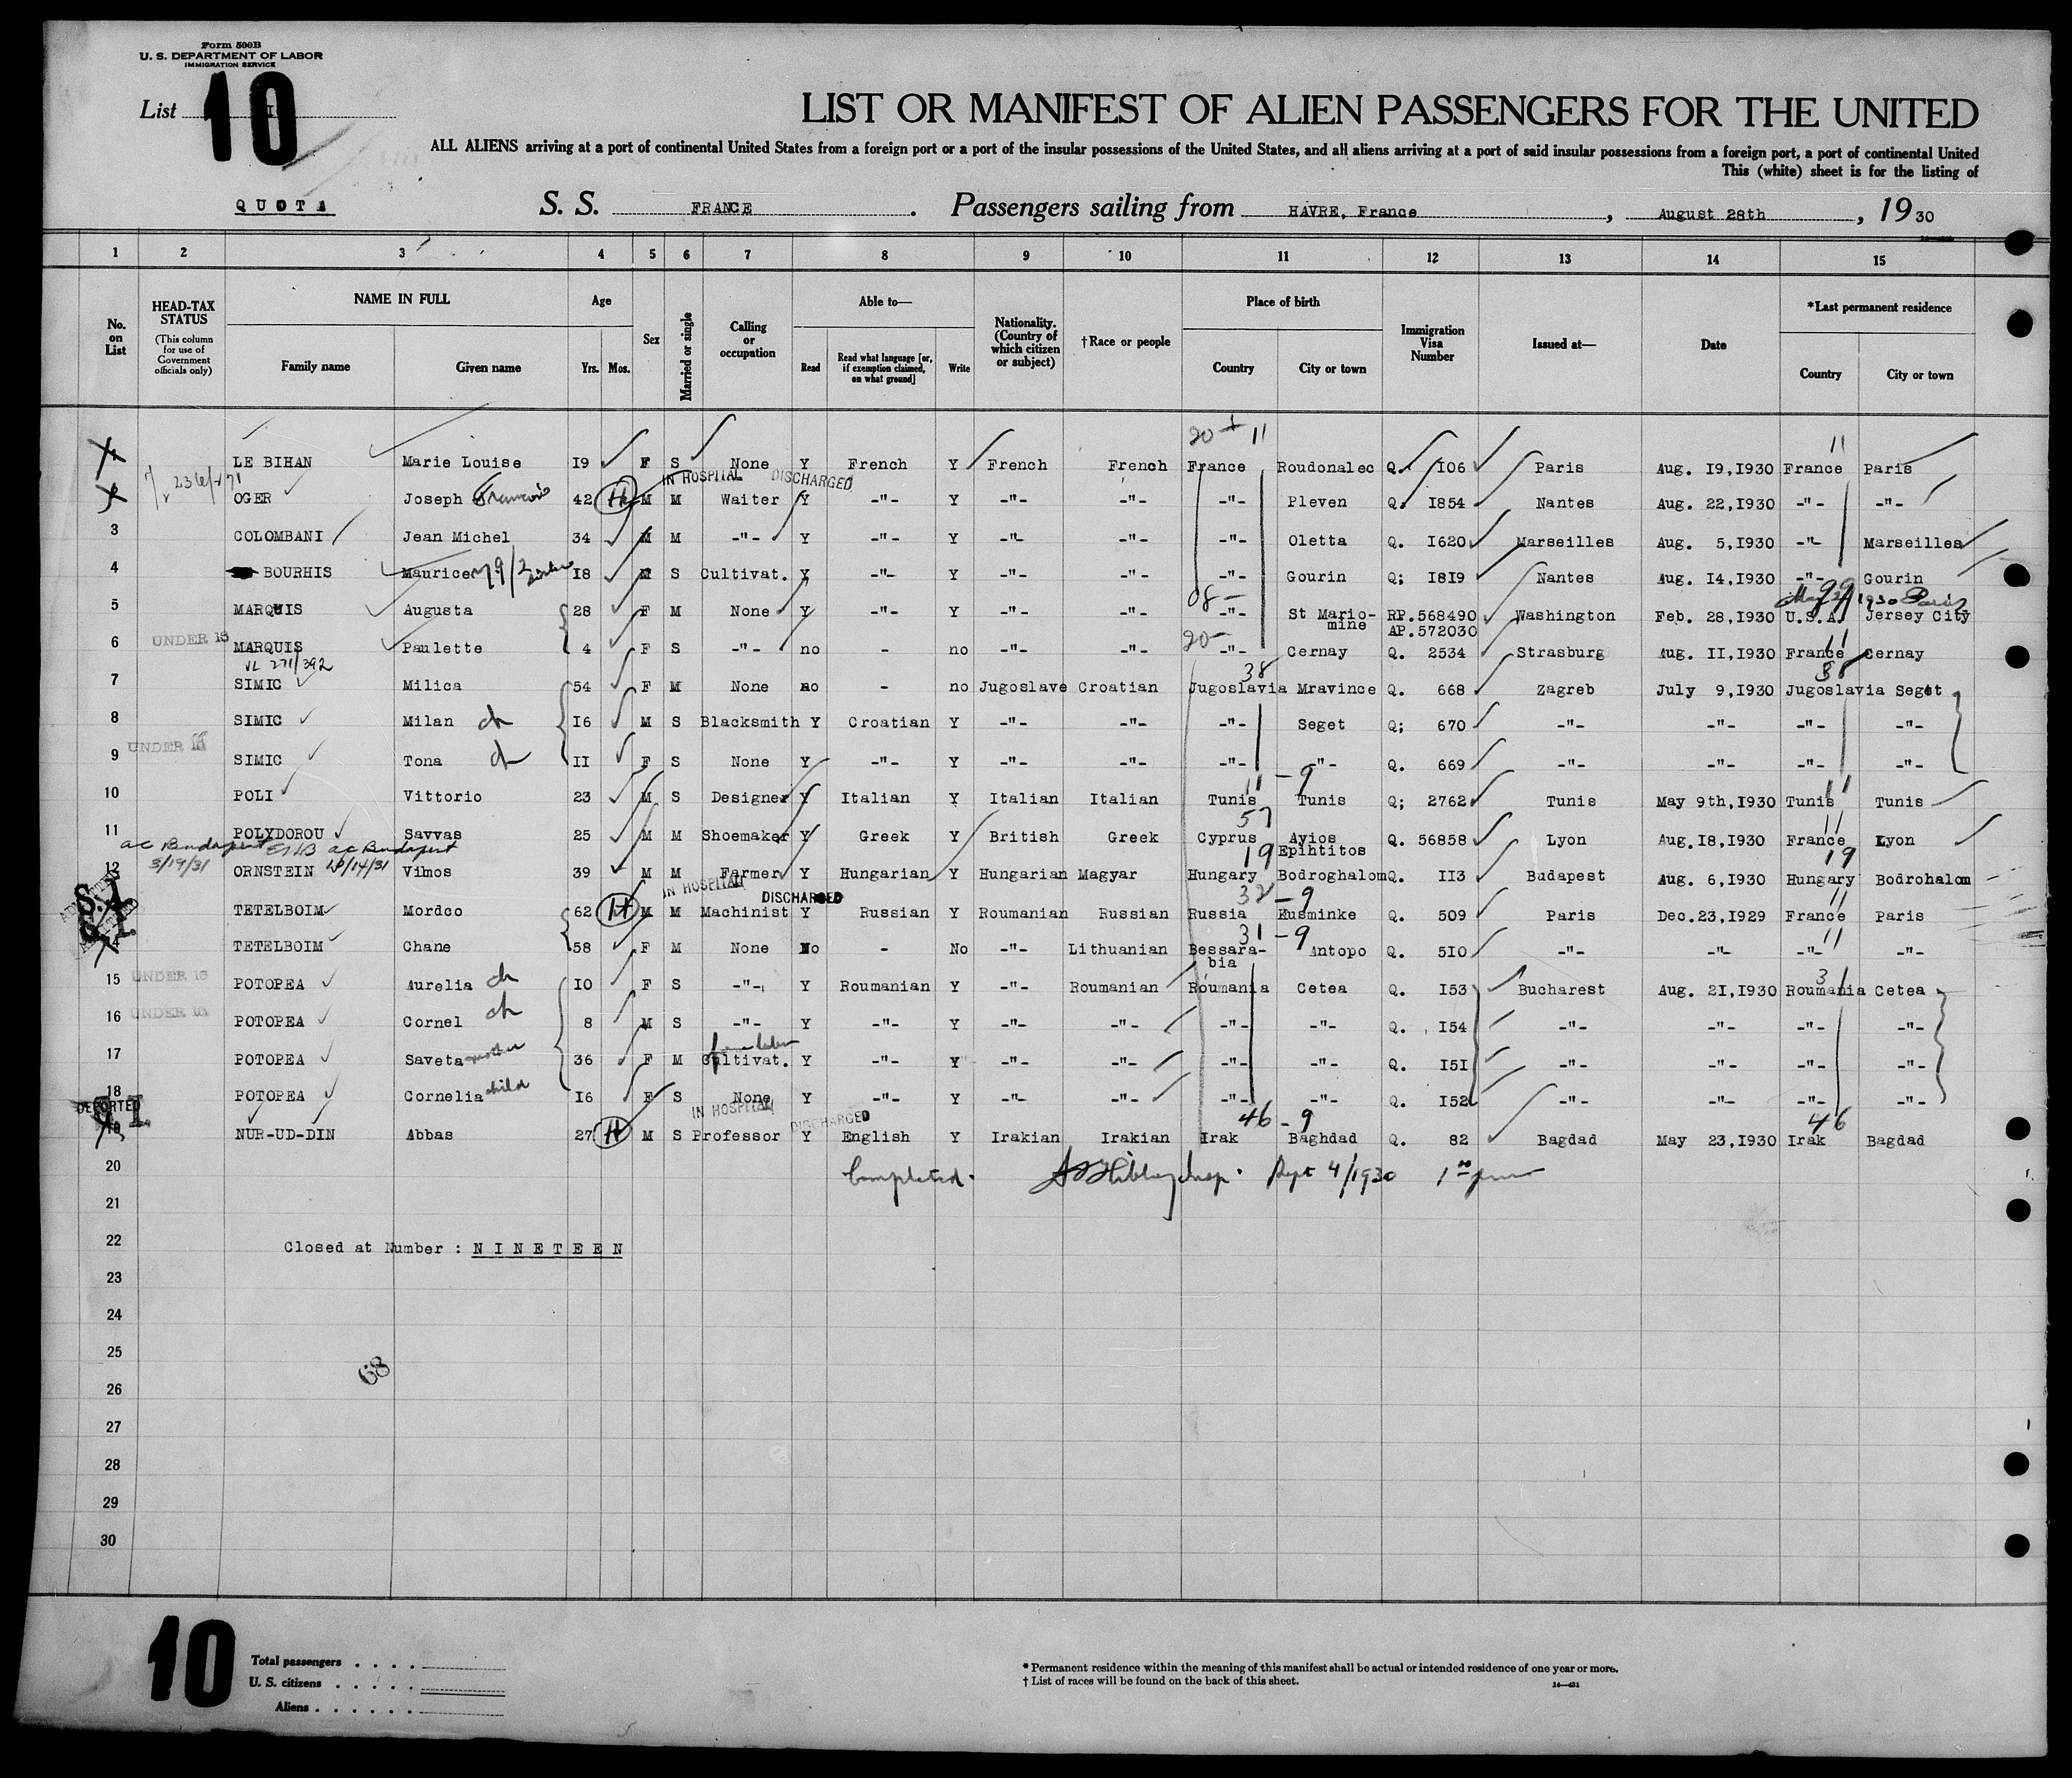 Form 500B
U. S. DEPARTMENT OF LABOR
IMMIGRATION SERVICE
List 10
LIST OR MANIFEST OF ALIEN PASSENGERS FOR THE UNITED
ALL ALIENS arriving at a port of continental United States from a foreign port or a port of the insular possessions of the United States, and all aliens arriving at a port of said insular possessions from a foreign port, a port of continental United
This (white) sheet is for the listing of
QUOTA S. S. FRANCE . Passengers sailing from HAVRE, France , August 28th , 1930
1 2 3 4 5 6 7 8 9 10 11 12 13 14 15
No. on List
HEAD-TAX STATUS (This column for use of Government officials only)
NAME IN FULL Family name Given name
Age Yrs. Mos.
Sex
Married or single
Calling or occupation
Able to— Read Read what language [or, if exemption claimed, on what ground] Write
Nationality. (Country of which citizen or subject)
†Race or people
Place of birth Country City or town
Immigration Visa Number
Issued at—
Date
*Last permanent residence Country City or town
20 11 11
LE BIHAN Marie Louise I9 F S None Y French Y French French France Roudonalec Q. I06 Paris Aug. I9,I930 France Paris
IN HOSPITAL DISCHARGED
OGER Joseph Francois 42 H M M Waiter Y -"- Y -"- -"- -"- Pleven Q. I854 Nantes Aug. 22,I930 -"- -"-
3 COLOMBANI Jean Michel 34 M M -"- Y -"- Y -"- -"- -"- Oletta Q. I620 Marseilles Aug. 5,I930 -"- Marseilles
4 BOURHIS Maurice I8 M S Cultivat. Y -"- Y -"- -"- -"- Gourin Q; I8I9 Nantes Aug. I4,I930 -"- Gourin
08- 99 1930 Paris
5 MARQUIS Augusta 28 F M None Y -"- Y -"- -"- -"- St Mario-mine RP.568490 AP.572030 Washington Feb. 28,I930 U.S.A. Jersey City
20- 11
6 UNDER 16 MARQUIS Paulette 4 F S -"- no - no -"- -"- -"- Cernay Q. 2534 Strasburg Aug. II,I930 France Cernay
VL 271/392 38 38
7 SIMIC Milica 54 F M None no - no Jugoslave Croatian Jugoslavia Mravince Q. 668 Zagreb July 9,I930 Jugoslavia Seget
8 SIMIC Milan ch I6 M S Blacksmith Y Croatian Y -"- -"- -"- Seget Q; 670 -"- -"- -"- -"-
9 UNDER 16 SIMIC Tona ch II F S None Y -"- Y -"- -"- -"- -"- Q. 669 -"- -"- -"- -"-
11 - 9 11
10 POLI Vittorio 23 M S Designer Y Italian Y Italian Italian Tunis Tunis Q; 2762 Tunis May 9th,I930 Tunis Tunis
57 11
11 POLYDOROU Savvas 25 M M Shoemaker Y Greek Y British Greek Cyprus Ayios Ephtitos Q. 56858 Lyon Aug.I8,I930 France Lyon
ac Budapest ac Budapest
3/19/31 19 19
12 ORNSTEIN Vilmos 39 M M Farmer Y Hungarian Y Hungarian Magyar Hungary Bodroghalom Q. II3 Budapest Aug. 6,I930 Hungary Bodrohalom
S.I. IN HOSPITAL DISCHARGED 32 - 9 11
TETELBOIM Mordco 62 H M M Machinist Y Russian Y Roumanian Russian Russia Kusminke Q. 509 Paris Dec.23,I929 France Paris
S.I. 31 - 9 11
TETELBOIM Chane 58 F M None No - No -"- Lithuanian Bessara-bia Antopo Q. 5I0 -"- -"- -"- -"-
31
15 UNDER 16 POTOPEA Aurelia ch I0 F S -"- Y Roumanian Y -"- Roumanian Roumania Cetea Q. I53 Bucharest Aug. 2I,I930 Roumania Cetea
16 UNDER 16 POTOPEA Cornel ch 8 M S -"- Y -"- Y -"- -"- -"- -"- Q. I54 -"- -"- -"- -"-
17 POTOPEA Saveta mother 36 F M Cultivat. Y -"- Y -"- -"- -"- -"- Q. I5I -"- -"- -"- -"-
18 POTOPEA Cornelia child I6 F S None Y -"- Y -"- -"- -"- -"- Q. I52 -"- -"- -"- -"-
DEPORTED S.I. IN HOSPITAL DISCHARGED 46 - 9 46
19 NUR-UD-DIN Abbas 27 H M S Professor Y English Y Irakian Irakian Irak Baghdad Q. 82 Bagdad May 23,I930 Irak Bagdad
20 Completed. Insp. Sept 4/1930
21
22 Closed at Number : NINETEEN
23
24
25
68
26
27
28
29
30
10
Total passengers . . . .
U. S. citizens . . . . .
Aliens . . . . . .
* Permanent residence within the meaning of this manifest shall be actual or intended residence of one year or more.
† List of races will be found on the back of this sheet.
14—431